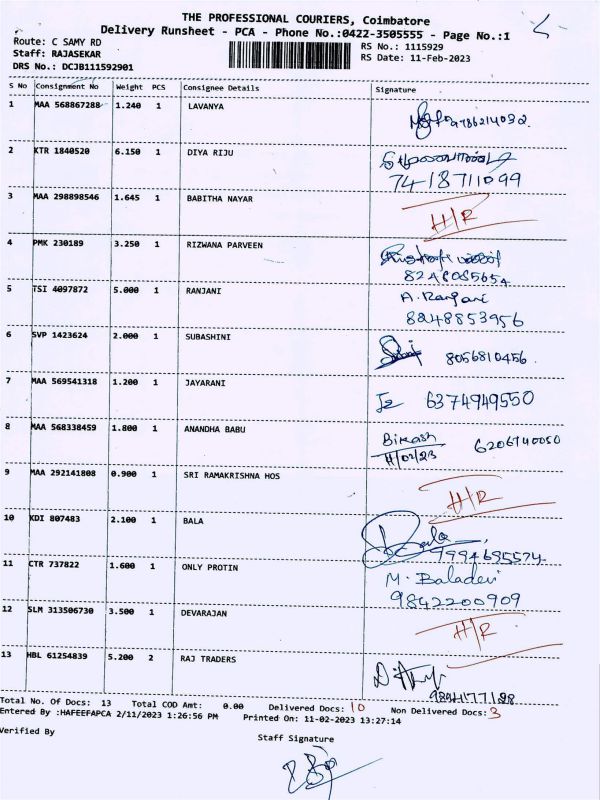 THE PROFESSIONAL COURIERS, Coimbatore
Delivery Runsheet - PCA - Phone No.:0422-3505555 - Page No.:1
Route: C SAMY RD
Staff: RAJASEKAR
DRS No.: DCJB111592901
RS No.: 1115929
RS Date: 11-Feb-2023
S No Consignment No Weight PCS Consignee Details Signature
1 MAA 568867288 1.240 1 LAVANYA 9786214032
2 KTR 1840520 6.150 1 DIYA RIJU
7418711099
3 MAA 298898546 1.645 1 BABITHA NAYAR H/R
4 PMK 230189 3.250 1 RIZWANA PARVEEN
8248085654
5 TSI 4097872 5.000 1 RANJANI A. Ranjani
8248853956
6 SVP 1423624 2.000 1 SUBASHINI 8056810456
7 MAA 569541318 1.200 1 JAYARANI 6374949550
8 MAA 568338459 1.800 1 ANANDHA BABU Bikash 6206740050
11/02/23
9 MAA 292141808 0.900 1 SRI RAMAKRISHNA HOS H/R
10 KDI 807483 2.100 1 BALA Bala
9994695574
11 CTR 737822 1.600 1 ONLY PROTIN M. Baladevi
9842200909
12 SLM 313506730 3.500 1 DEVARAJAN H/R
13 HBL 61254839 5.200 2 RAJ TRADERS
Total No. Of Docs: 13 Total COD Amt: 0.00 Delivered Docs: 10 Non Delivered Docs: 3
Entered By :HAFEEFAPCA 2/11/2023 1:26:56 PM Printed On: 11-02-2023 13:27:14
Verified By
Staff Signature